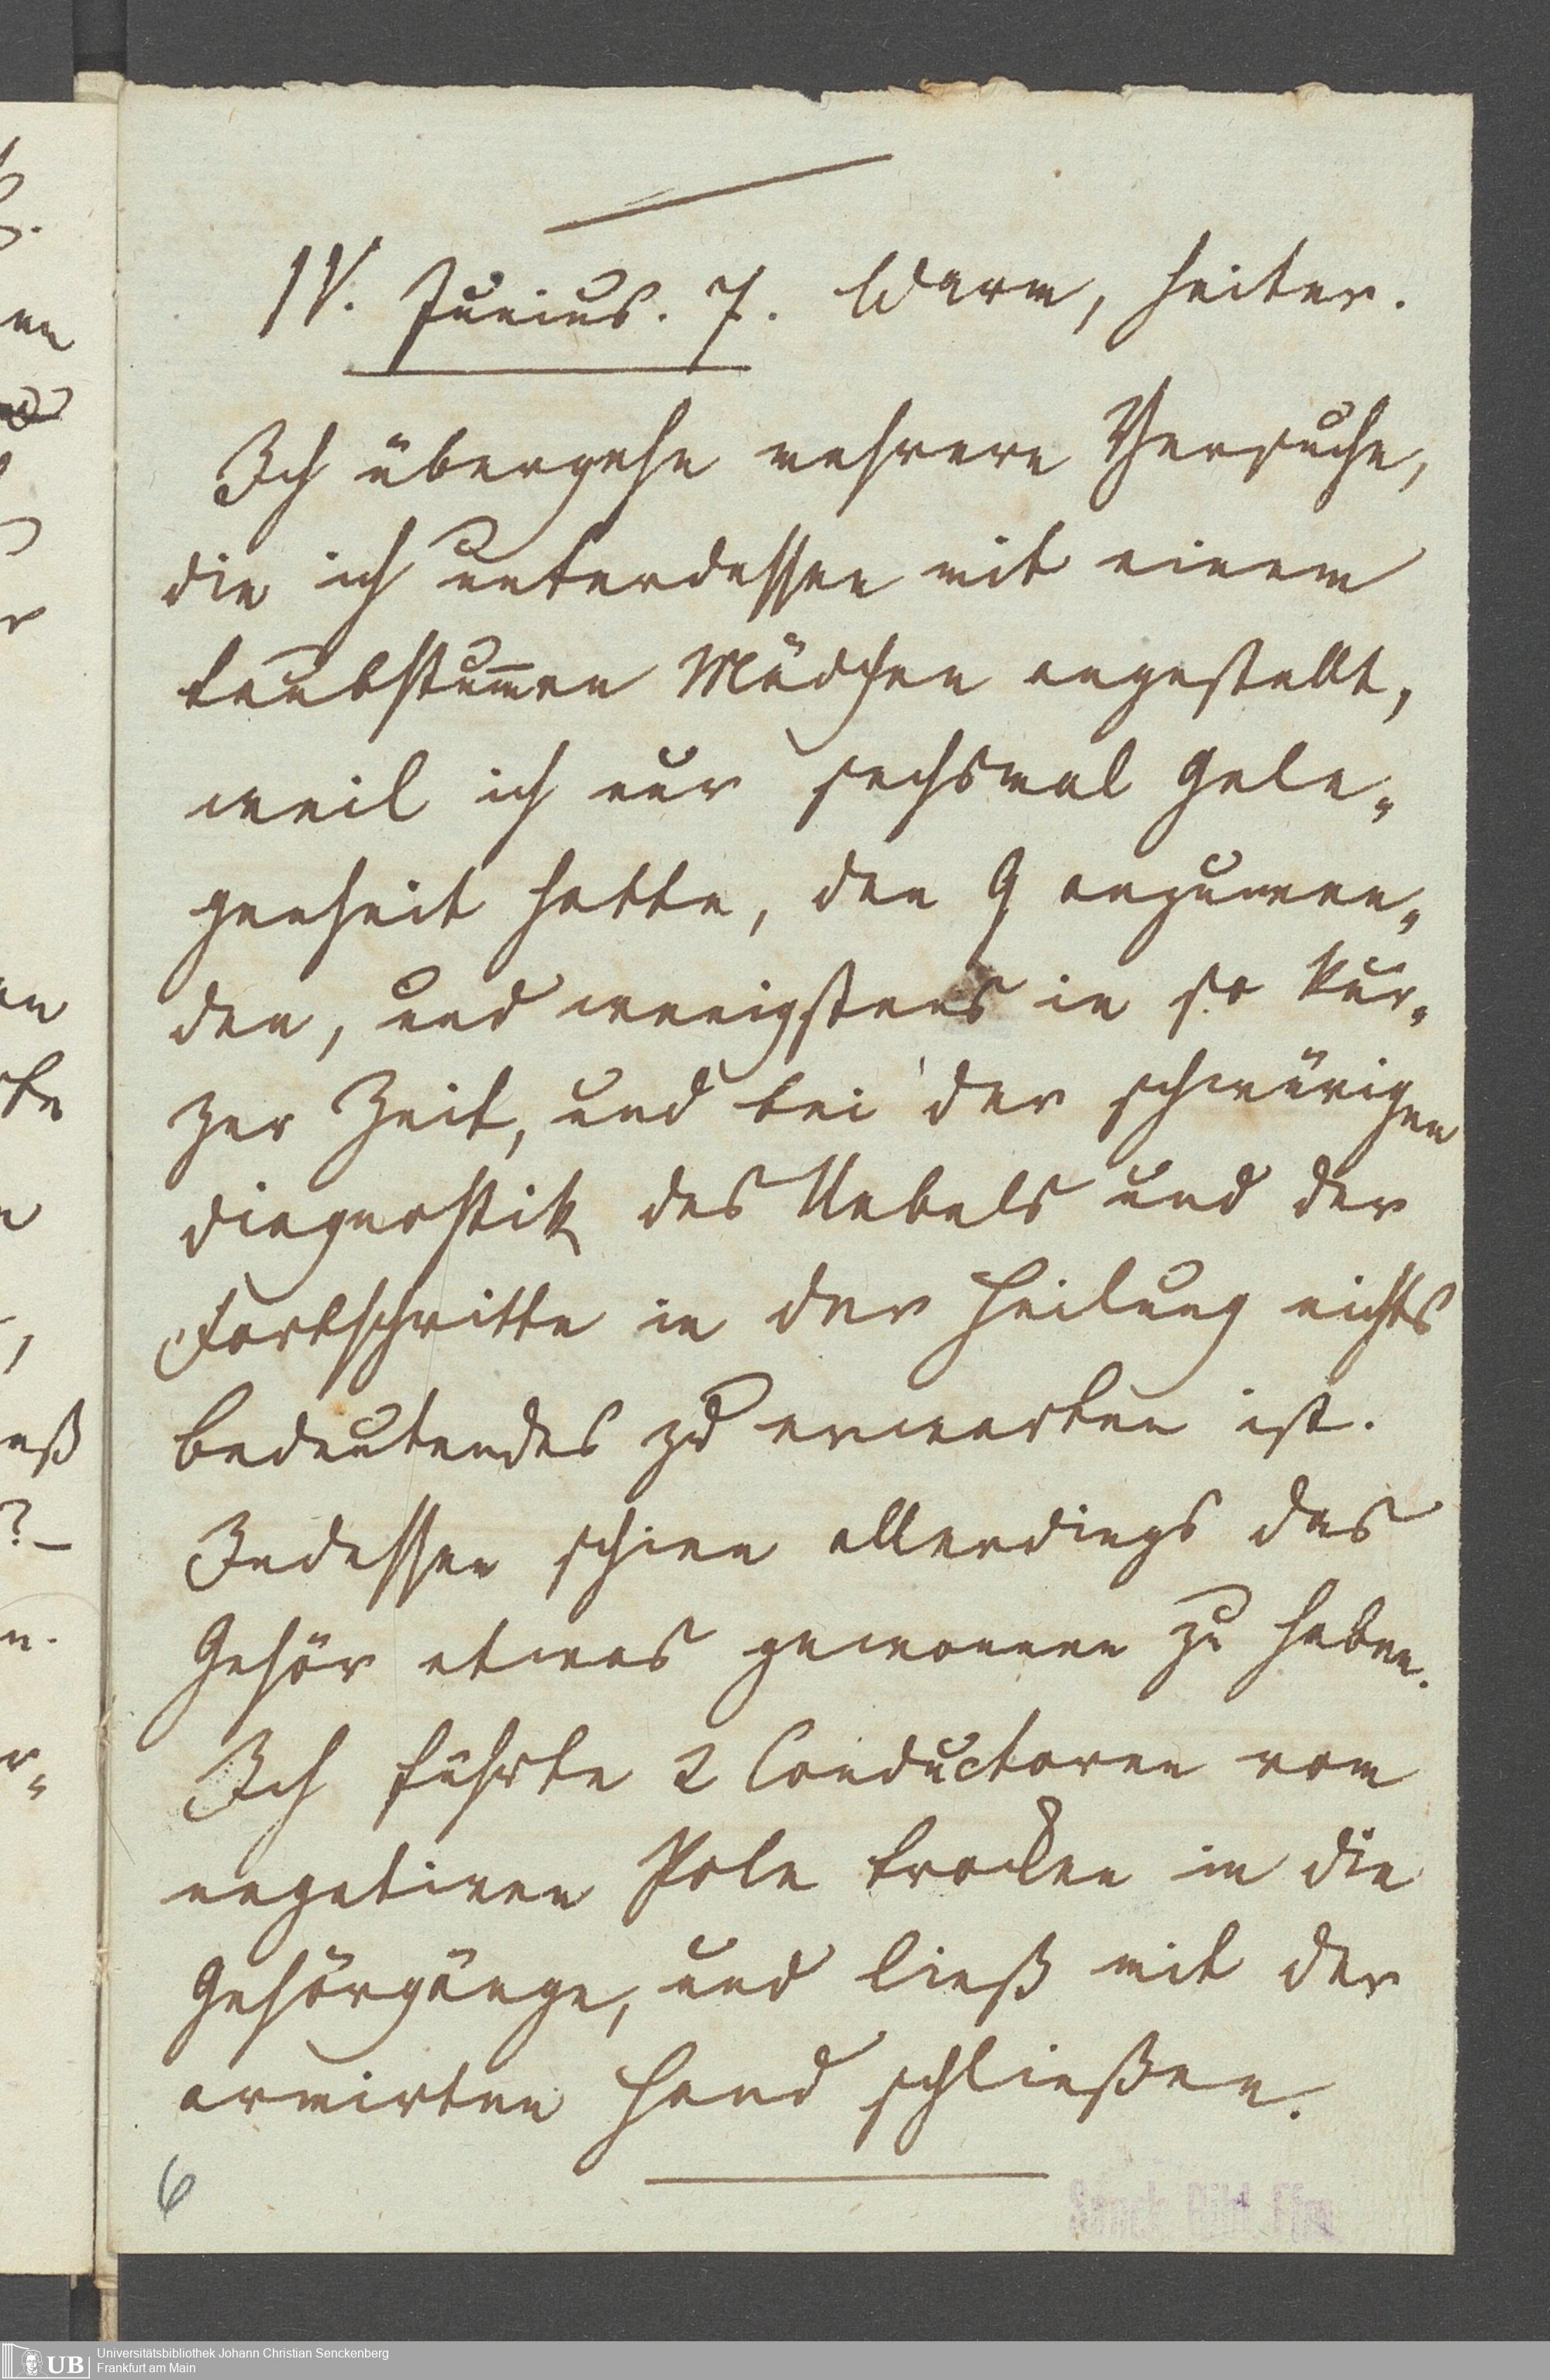 IV. Junius. 7. Warm, heiter.
Ich übergehe mehrere Versuche,
die ich unterdessen mit einem
taubstum̅en Mädchen angestellt,
weil ich nur sechsmal Gele-
genheit hatte, den G anzuwen-
den, und wenigstens in so kur-
zer Zeit, und bei der schwürigen
Diagnostik des Uebels und der
Fortschritte in der Heilung nichts
bedeutendes zu erwarten ist.
Indessen schien allerdings das
Gehör etwas gewonnen zu haben.
Ich führte 2 Conductoren vom
negativen Pole trocken in die
Gehörgänge, und ließ mit der
armirten Hand schließen.
6
Senck. Bibl. Ffm
UB
Universitätsbibliothek Johann Christian Senckenberg
Frankfurt am Main